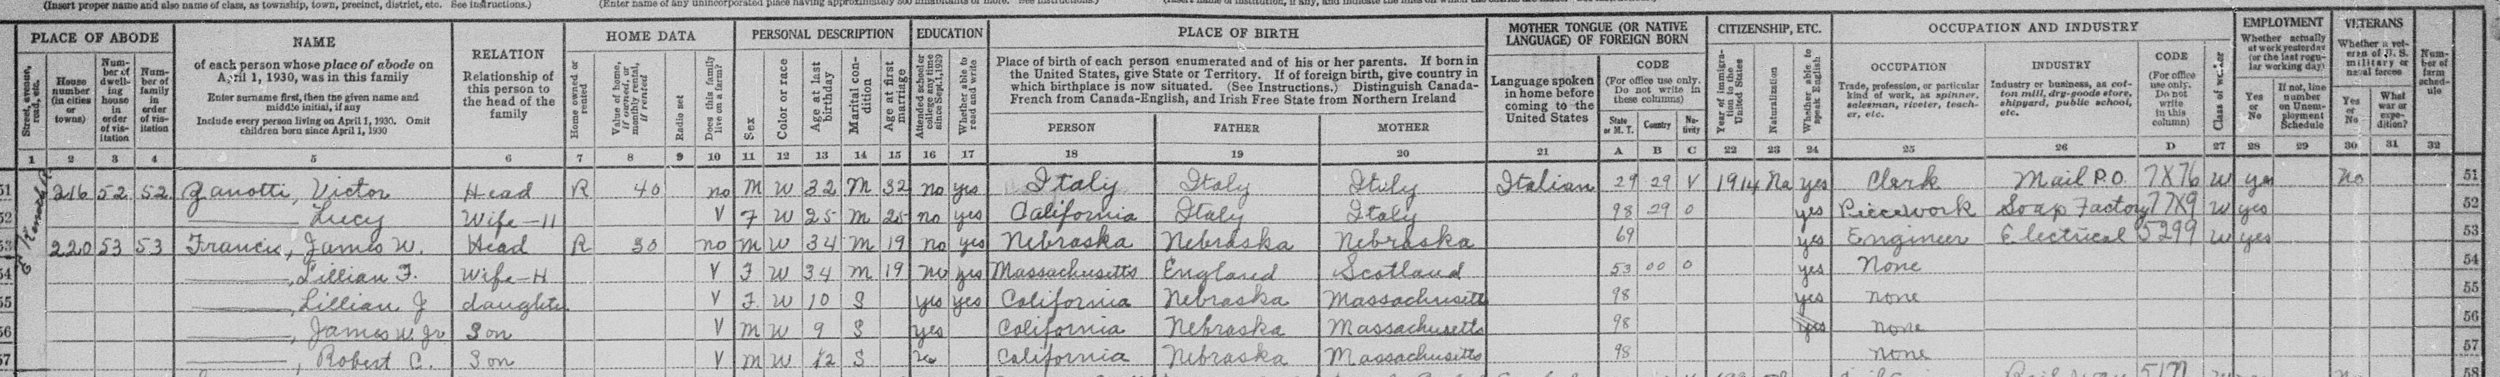 (Insert proper name and also name of class, as township, town, precinct, district, etc. See instructions.) (Enter name of any unincorporated place having approximately 500 inhabitants or more. See instructions.)
PLACE OF ABODE
Street, avenue, road, etc.
House number (in cities or towns)
Number of dwelling house in order of visitation
Number of family in order of visitation
NAME
of each person whose place of abode on
April 1, 1930, was in this family
Enter surname first, then the given name and
middle initial, if any
Include every person living on April 1, 1930. Omit
children born since April 1, 1930
RELATION
Relationship of
this person to
the head of the
family
HOME DATA
Home owned or rented
Value of home, if owned, or monthly rental, if rented
Radio set
Does this family live on a farm?
PERSONAL DESCRIPTION
Sex
Color or race
Age at last birthday
Marital condition
Age at first marriage
EDUCATION
Attended school or college any time since Sept. 1, 1929
Whether able to read and write
PLACE OF BIRTH
Place of birth of each person enumerated and of his or her parents. If born in
the United States, give State or Territory. If of foreign birth, give country in
which birthplace is now situated. (See Instructions.) Distinguish Canada-
French from Canada-English, and Irish Free State from Northern Ireland
PERSON FATHER MOTHER
MOTHER TONGUE (OR NATIVE
LANGUAGE) OF FOREIGN BORN
Language spoken
in home before
coming to the
United States
CODE
(For office use only.
Do not write in
these columns)
State or M. T. Country Nativity
CITIZENSHIP, ETC.
Year of immigration to the United States
Naturalization
Whether able to speak English
OCCUPATION AND INDUSTRY
OCCUPATION
Trade, profession, or particular
kind of work, as spinner,
salesman, riveter, teach-
er, etc.
INDUSTRY
Industry or business, as cot-
ton mill, dry-goods store,
shipyard, public school,
etc.
CODE
(For office
use only.
Do not
write
in this
column)
Class of worker
EMPLOYMENT
Whether actually
at work yesterday
(or the last regu-
lar working day)
Yes or No
If not, line number on Unemployment Schedule
VETERANS
Whether a vet-
eran of U. S.
military or
naval forces
Yes or No
What war or expedition?
Number of farm schedule
1 2 3 4 5 6 7 8 9 10 11 12 13 14 15 16 17 18 19 20 21 A B C 22 23 24 25 26 D 27 28 29 30 31 32
51 216 52 52 Zanotti, Victor Head R 40 no M W 32 M 32 no yes Italy Italy Italy Italian 29 29 V 1914 Na yes Clerk Mail P.O. 7X76 W yes no 51
52 Lucy Wife-H V F W 25 M 25 no yes California Italy Italy 98 29 0 yes Piecework Soap Factory 77X9 W yes 52
53 220 53 53 Francis, James W. Head R 30 no M W 34 M 19 no yes Nebraska Nebraska Nebraska 69 yes Engineer Electrical 5299 W yes 53
54 Lillian F. Wife-H V F W 34 M 19 no yes Massachusetts England Scotland 53 00 0 yes None 54
55 Lillian J daughter V F W 10 S yes yes California Nebraska Massachusetts 98 yes none 55
56 James W. Jr Son V M W 9 S yes California Nebraska Massachusetts 98 yes none 56
57 Robert C. Son V M W S California Nebraska Massachusetts 98 none 57
58